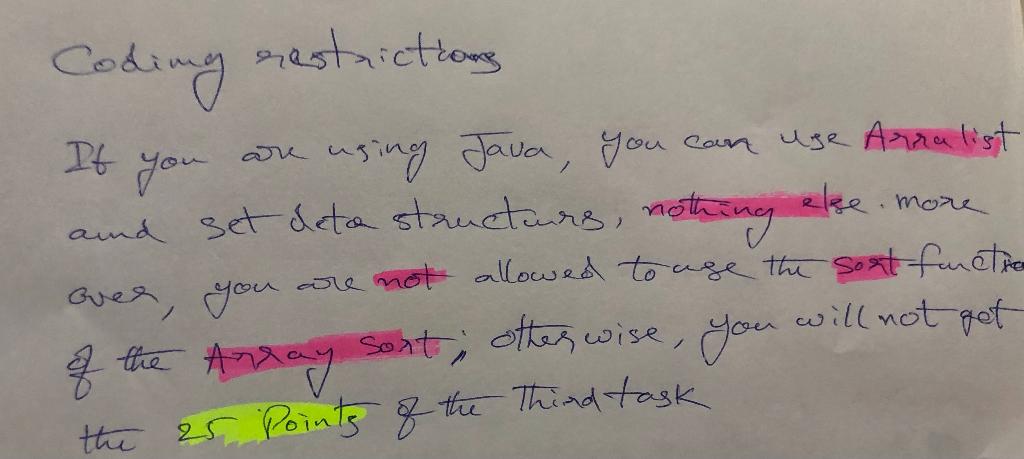 Coding restrictions
If you are using Java, you can use Arralist
aund set deta structurs, nothing else. more
over, you are not allowed to use the sort functio
of the Array Sort; otherwise, you will not get
the 25 Points of the Third task